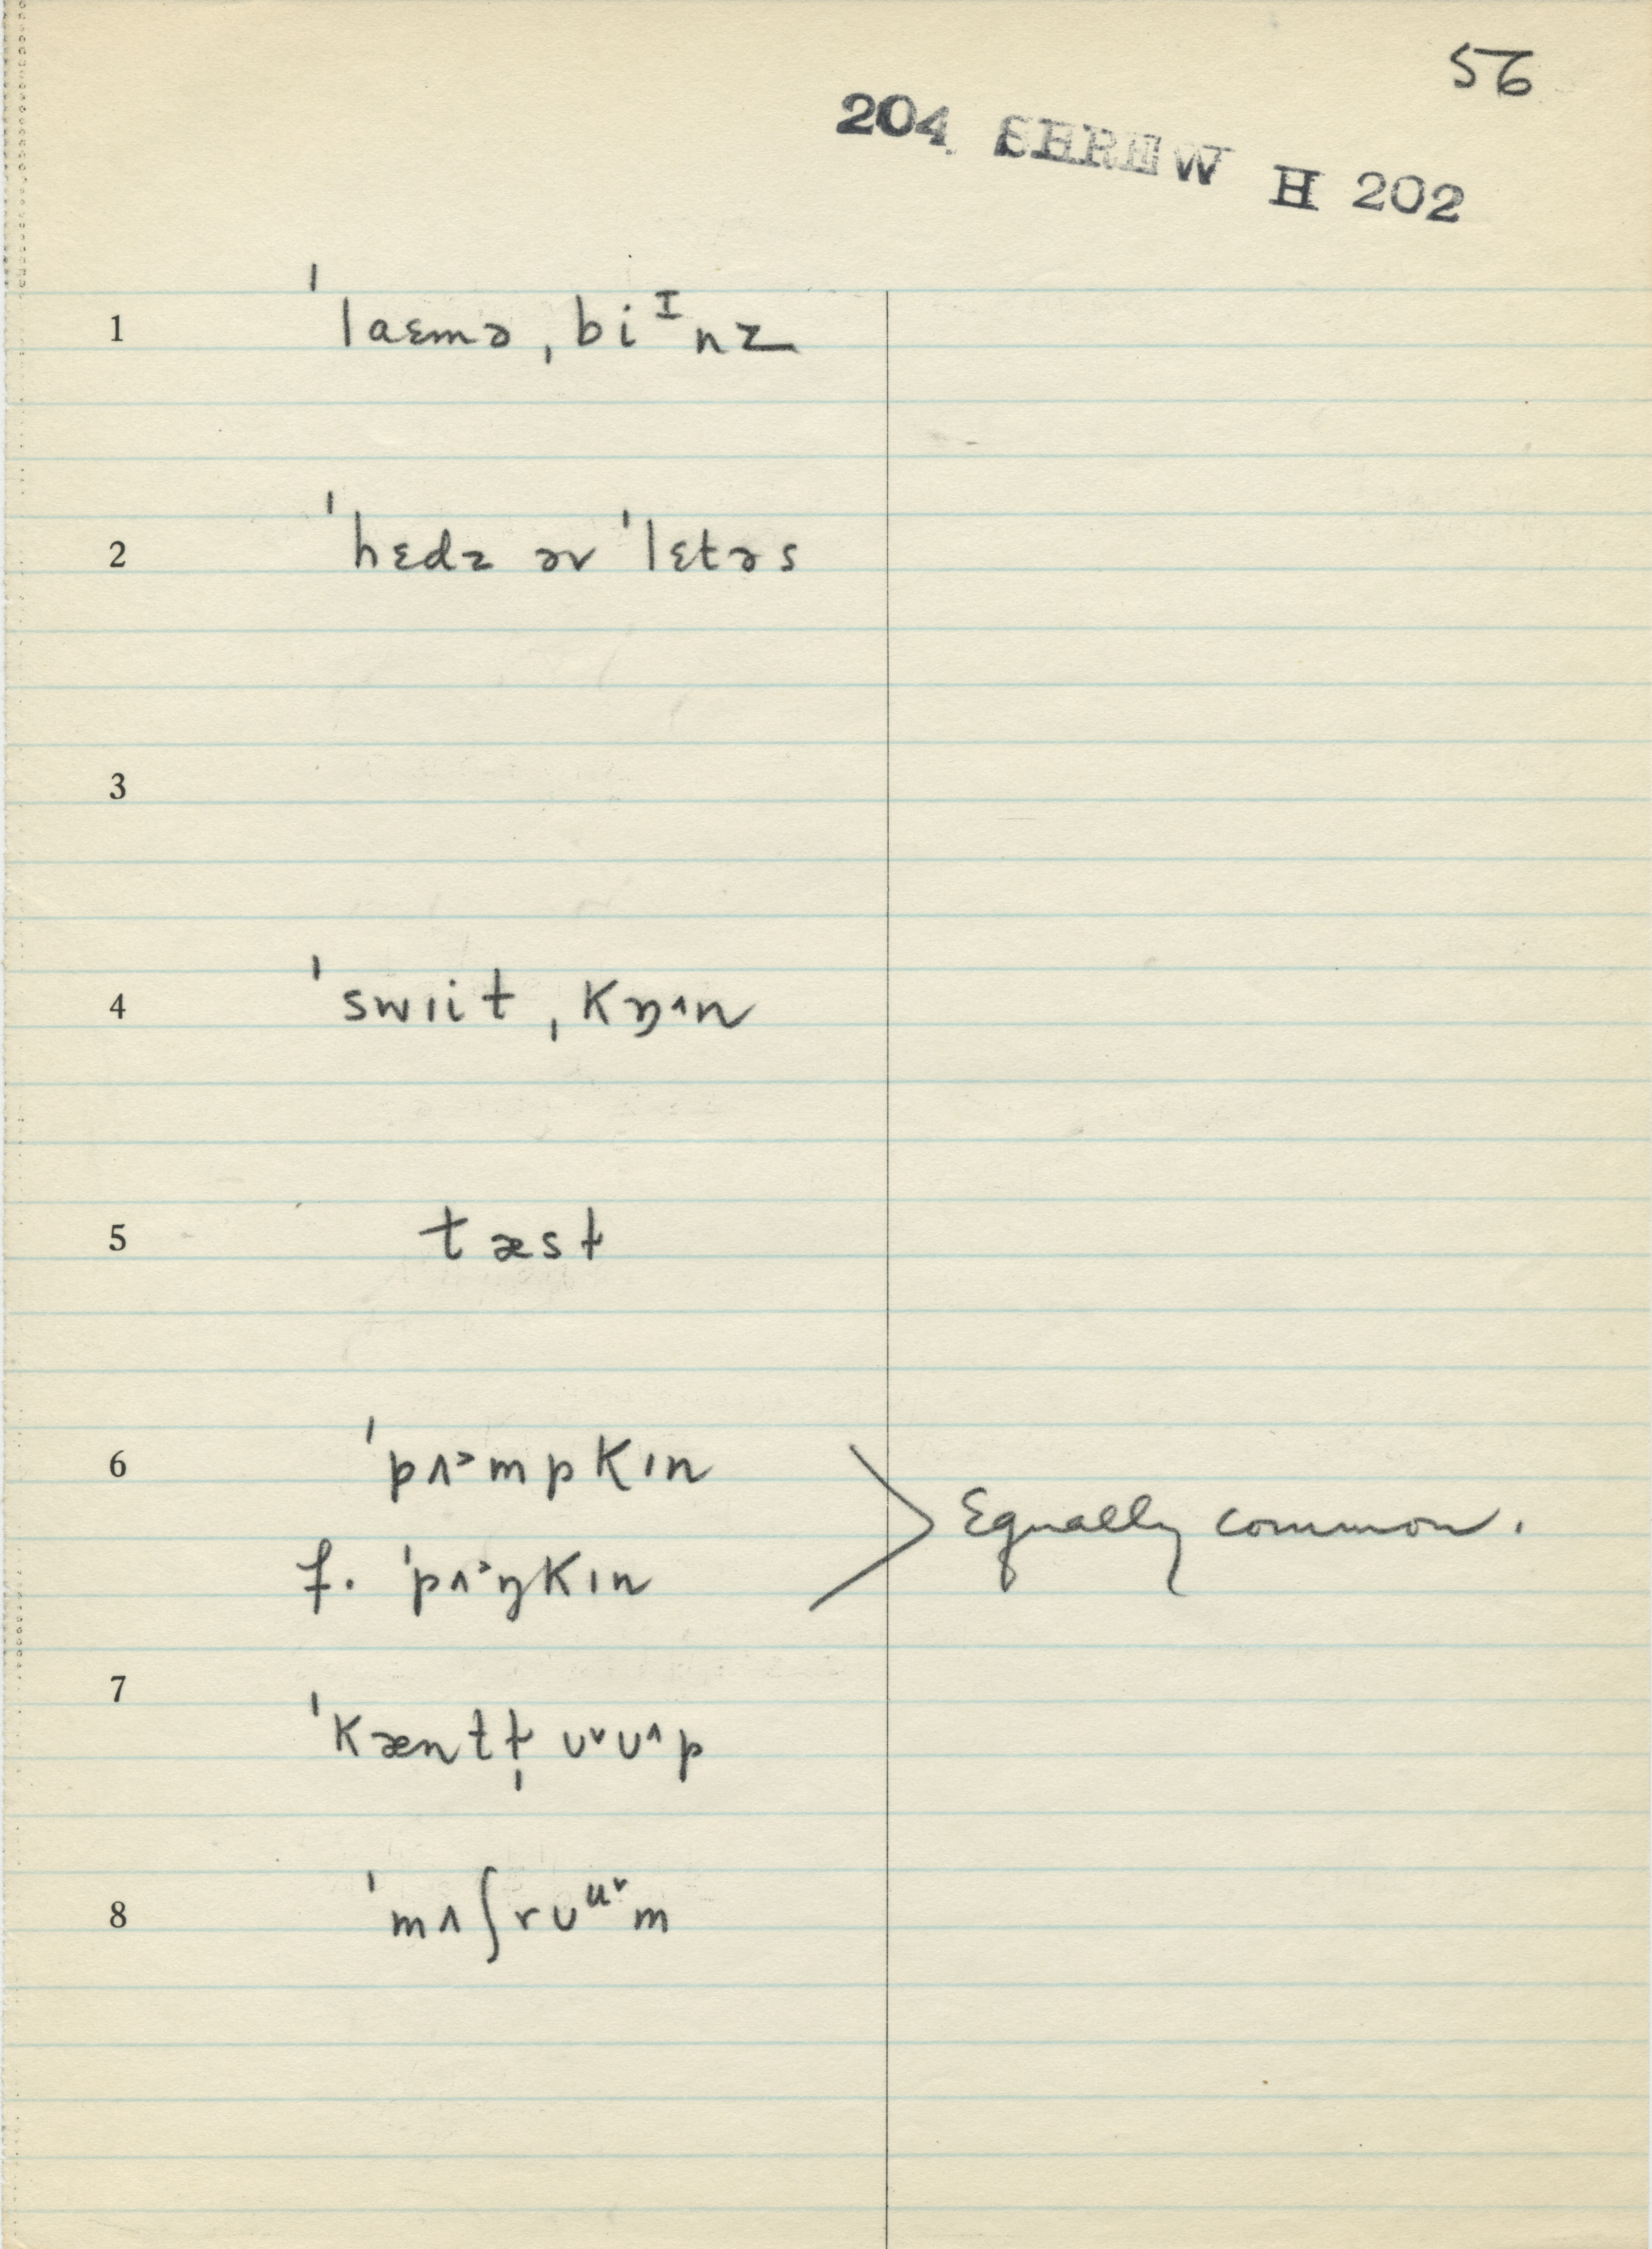 56
204 SHREW H 202
1 ˈlaɛmə ˌbiᴵnz
2 ˈhɛdz əv ˈlɛtəs
3
4 ˈswɪit ˌkɒ˄n
5 tæsɫ
6 ˈpʌ˃mpkɪn
f. ˈpʌ˃ŋkɪn
Equally common.
7 ˈkæntɫ̩ ʊ˅ʊ˄p
8 ˈmʌʃrʊᵘ˅m